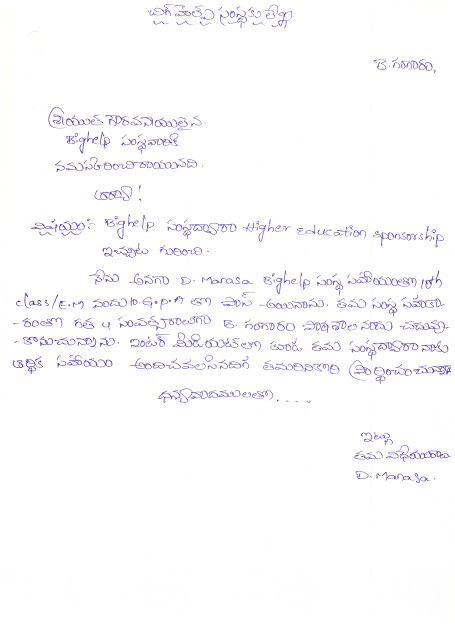 బిగ్ హెల్ప్ సంస్థకు లేఖ
B. గంగారం,
శ్రీయుత గౌరవనీయులైన
Bighelp సంస్థవారికి
నమస్కరించి రాయునది.
ఆర్యా!
విషయం:- Bighelp సంస్థద్వారా Higher Education sponsorship
ఇచ్చుట గురించి.
నేను అనగా D. Manasa Bighelp సంస్థ సహాయంతో 10th
class/E.M నందు 10 G.P.A తో పాస్ అయినాను. తమ సంస్థ సహకా
-రంతో గత 4 సంవత్సరాలుగా B. గంగారం పాఠశాల నందు చదువు
-కొనుచున్నాను. ఇంటర్ మీడియట్‌లో కూడ తమ సంస్థద్వారా నాకు
ఆర్థిక సహాయం అందించవలసినదిగా తమరిని కోరి ప్రార్థించుచున్నాను
ధన్యవాదములతో....
ఇట్లు
తమ విధేయురాలు
D. Manasa.